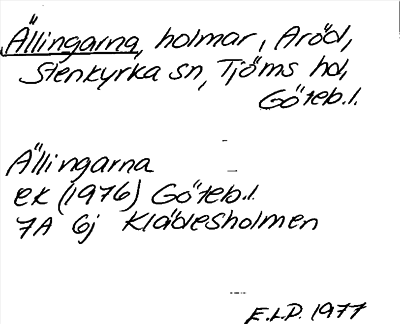 Ällingarna, holmar, Aröd,
Stenkyrka sn, Tjörns hd,
Göteb.l.
Ällingarna
ek (1976) Göteb.l.
7A 6j Klädesholmen
E.L.P. 1977